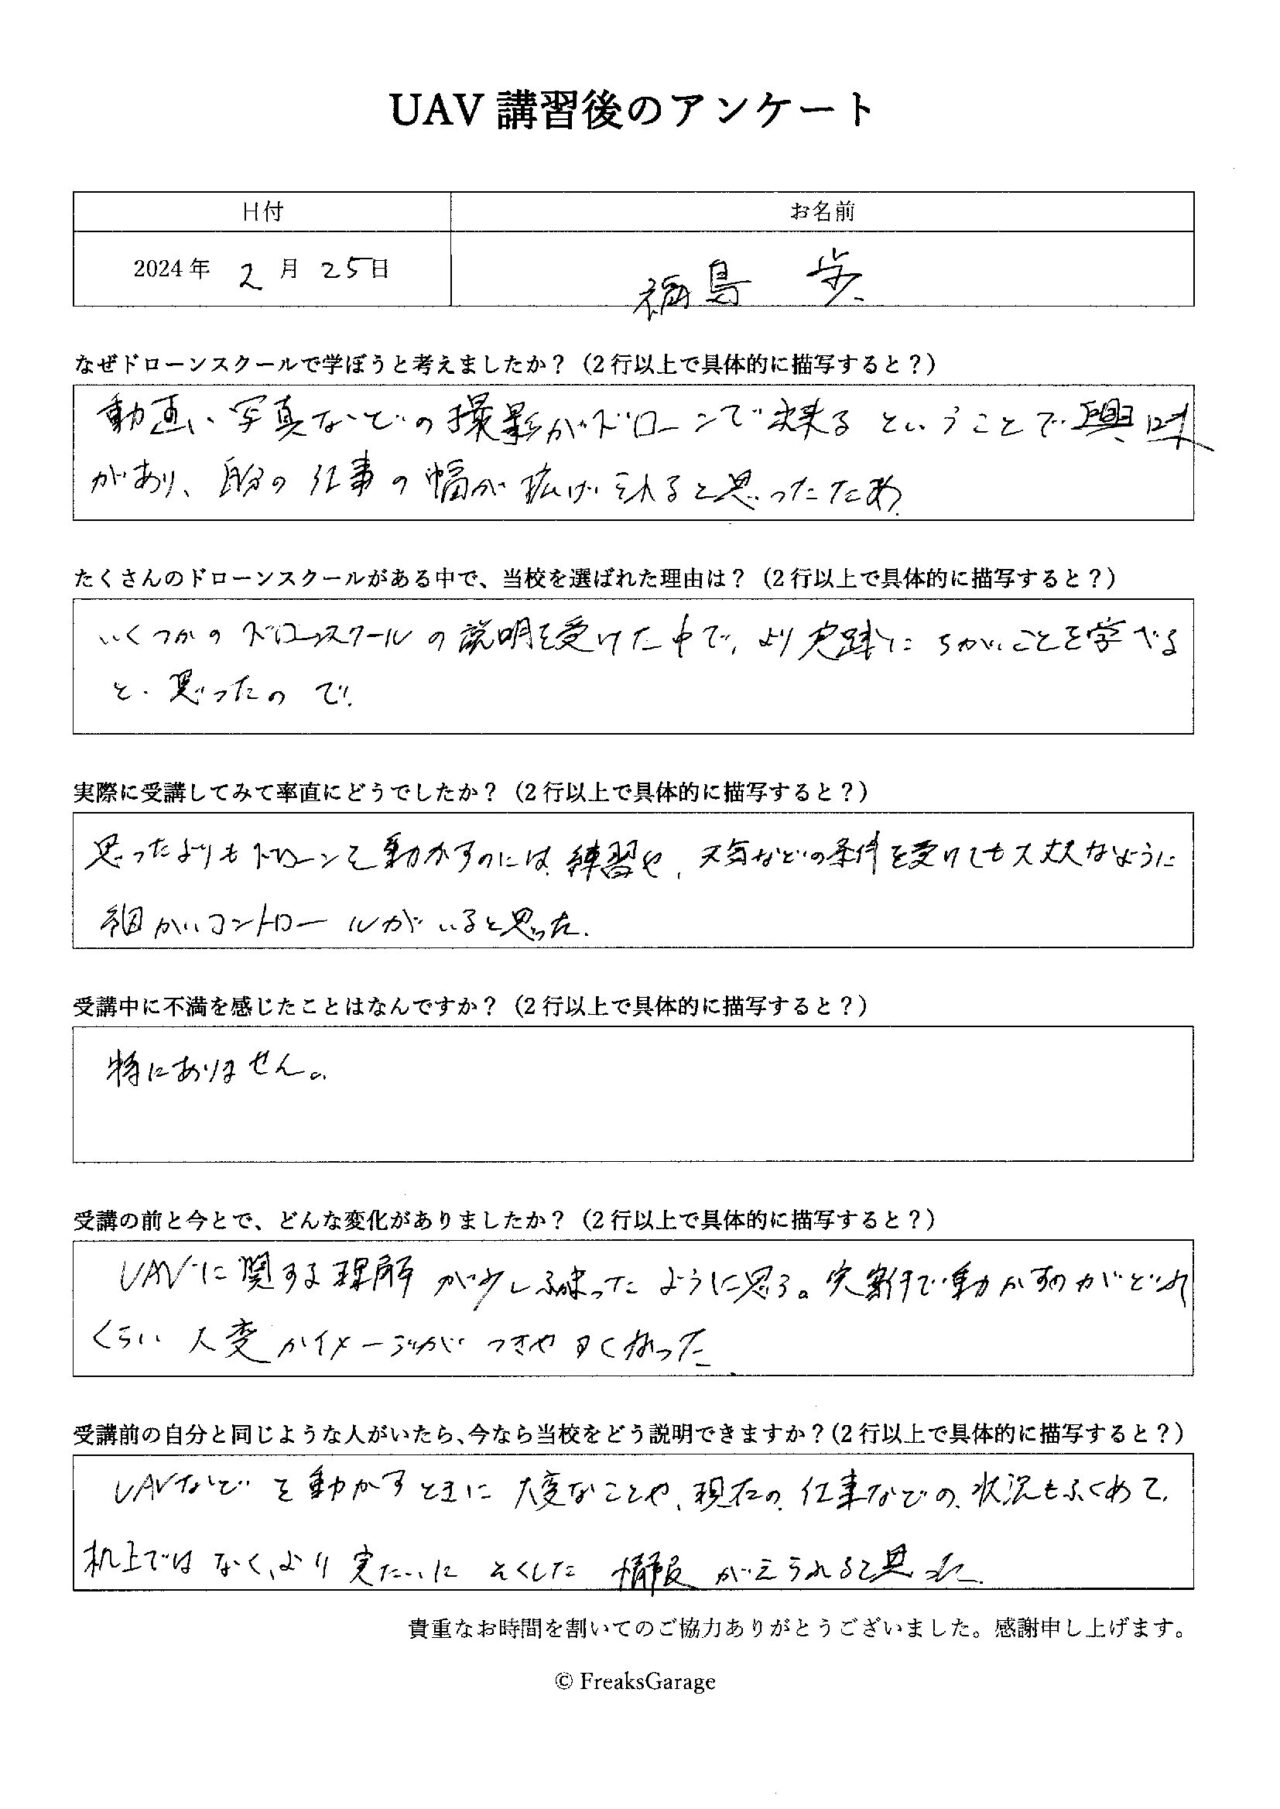 UAV 講習後のアンケート
日付
お名前
2024年 2 月 25日
福島 歩
なぜドローンスクールで学ぼうと考えましたか？（2行以上で具体的に描写すると？）
動画、写真などの撮影がドローンで出来るということで興味
があり、自分の仕事の幅が拡げられると思ったため
たくさんのドローンスクールがある中で、当校を選ばれた理由は？（2行以上で具体的に描写すると？）
いくつかのドローンスクールの説明を受けた中で、より実践にちかいことを学べる
と思ったので
実際に受講してみて率直にどうでしたか？（2行以上で具体的に描写すると？）
思ったよりもドローンを動かすのには、練習や、天気などの条件を受けても大丈夫なように
細かいコントロールがいると思った。
受講中に不満を感じたことはなんですか？（2行以上で具体的に描写すると？）
特にありません。
受講の前と今とで、どんな変化がありましたか？（2行以上で具体的に描写すると？）
UAVに関する理解が少し深まったように思う。実際で動かすのがどれ
くらい大変かイメージがつきやすくなった
受講前の自分と同じような人がいたら、今なら当校をどう説明できますか？（2行以上で具体的に描写すると？）
UAVなどを動かすときに大変なことや、現在の、仕事などの、状況もふくめて、
机上ではなく、より実たいにそくした情報がえられると思った
貴重なお時間を割いてのご協力ありがとうございました。感謝申し上げます。
© FreaksGarage